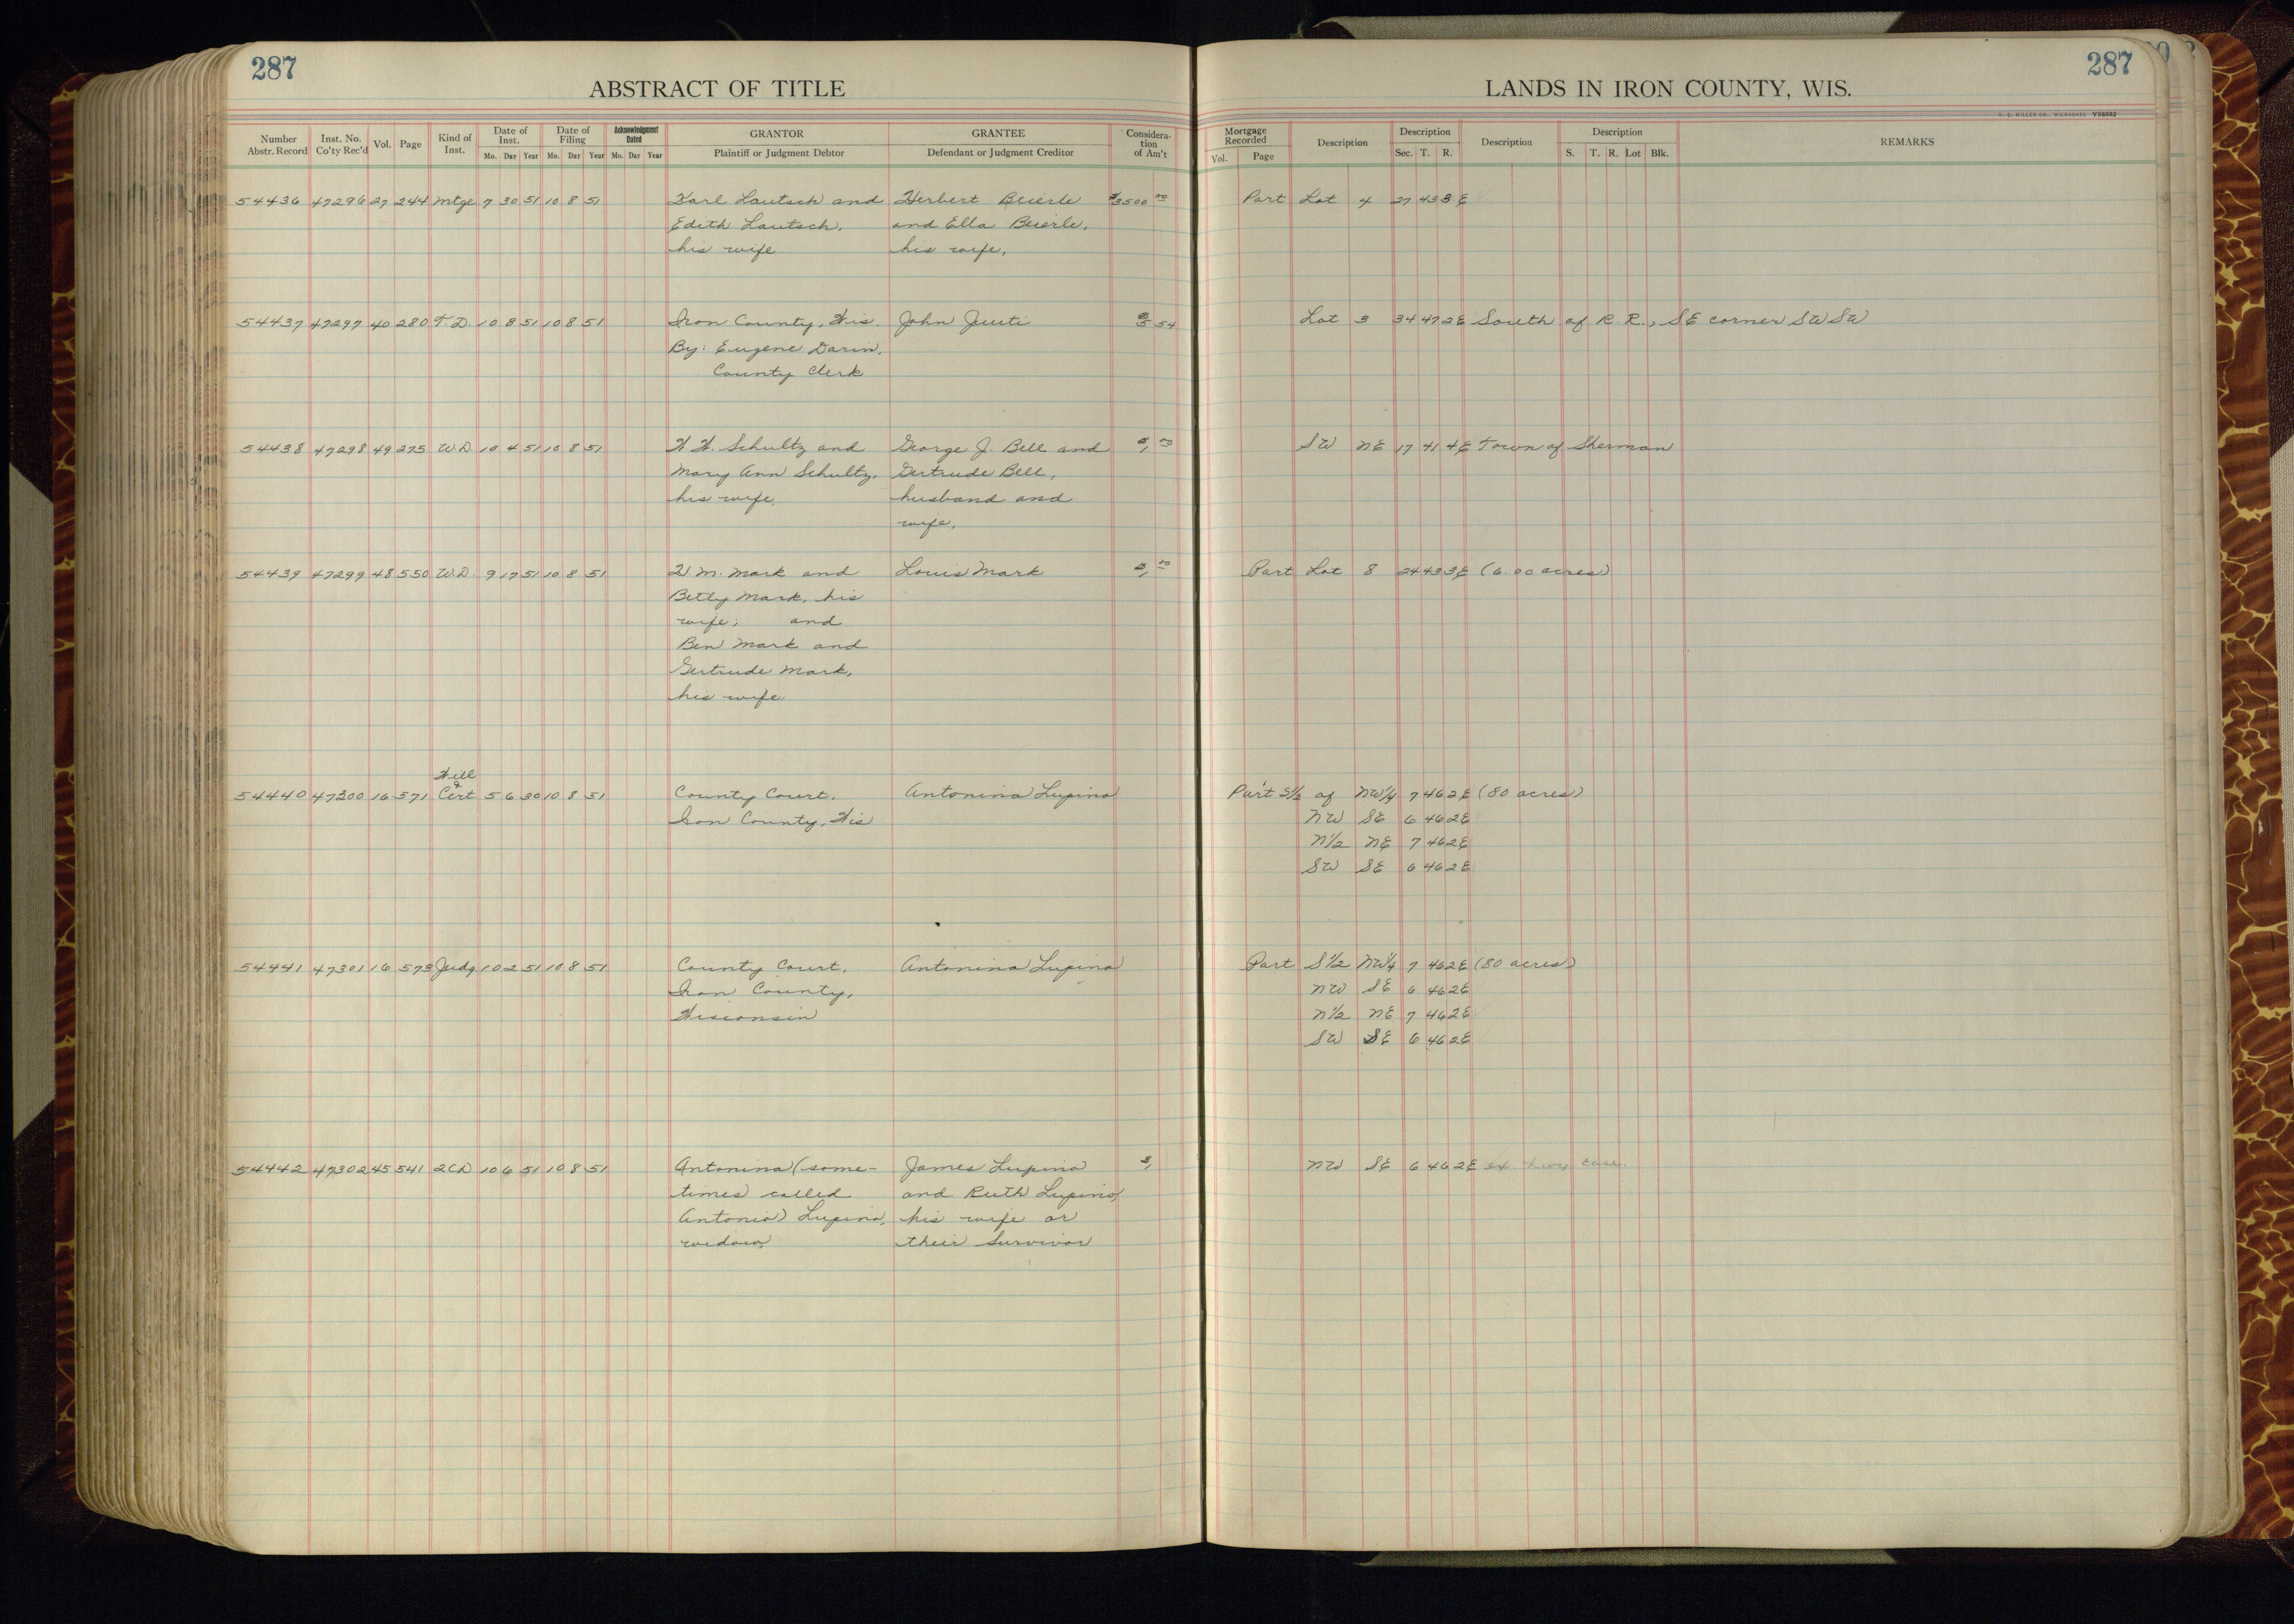 287
ABSTRACT OF TITLE
Number Abstr. Record Inst. No. Co'ty Rec'd Vol. Page Kind of Inst. Date of Inst. Mo. Day Year Date of Filing Mo. Day Year Acknowledgment Dated Mo. Day Year GRANTOR Plaintiff or Judgment Debtor GRANTEE Defendant or Judgment Creditor Consideration of Am't
54436 47296 27 244 Mtge 7 30 51 10 8 51 Karl Lautsch and Herbert Beierle $3500 00
Edith Lautsch, and Ella Beierle,
his wife his wife,
54437 47297 40 280 T.D. 10 8 51 10 8 51 Iron County, Wis. John Juuti 54
By: Eugene Darin,
County Clerk
54438 47298 49 275 W.D. 10 4 51 10 8 51 W. W. Schultz and George J. Bell and $1, 00
Mary Ann Schultz, Gertrude Bell,
his wife, husband and
wife,
54439 47299 48 550 W.D. 9 17 51 10 8 51 W. M. Mark and Louis Mark $1, 00
Betty Mark, his
wife; and
Ben Mark and
Gertrude Mark,
his wife
Will
&
54440 47300 16 571 Cert 5 6 30 10 8 51 County Court, Antonina Lupino
Iron County, Wis
54441 47301 16 573 Judg. 10 2 51 10 8 51 County Court, Antonina Lupino
Iron County,
Wisconsin
54442 47302 45 541 2CD 10 6 51 10 8 51 Antonina (some- James Lupino $1,
times called and Ruth Lupino,
Antonio) Lupino, his wife or
widow, their Survivor
287
LANDS IN IRON COUNTY, WIS.
H. C. MILLER CO., MILWAUKEE Y56882
Mortgage Recorded Vol. Page Description Description Sec. T. R. Description Description S. T. R. Lot Blk. REMARKS
Part Lot 4 27 43 3E
Lot 3 34 47 2E South of R. R., SE corner SW SW
SW NE 17 41 4E Town of Sherman
Part Lot 8 24 43 3E (6.00 acres)
Part S1/2 of NW1/4 7 46 2E (80 acres)
NW SE 6 46 2E
N1/2 NE 7 46 2E
SW SE 6 46 2E
Part S1/2 NW1/4 7 46 2E (80 acres)
NW SE 6 46 2E
N1/2 NE 7 46 2E
SW SE 6 46 2E
NW SE 6 46 2E ex. hwy. ease.